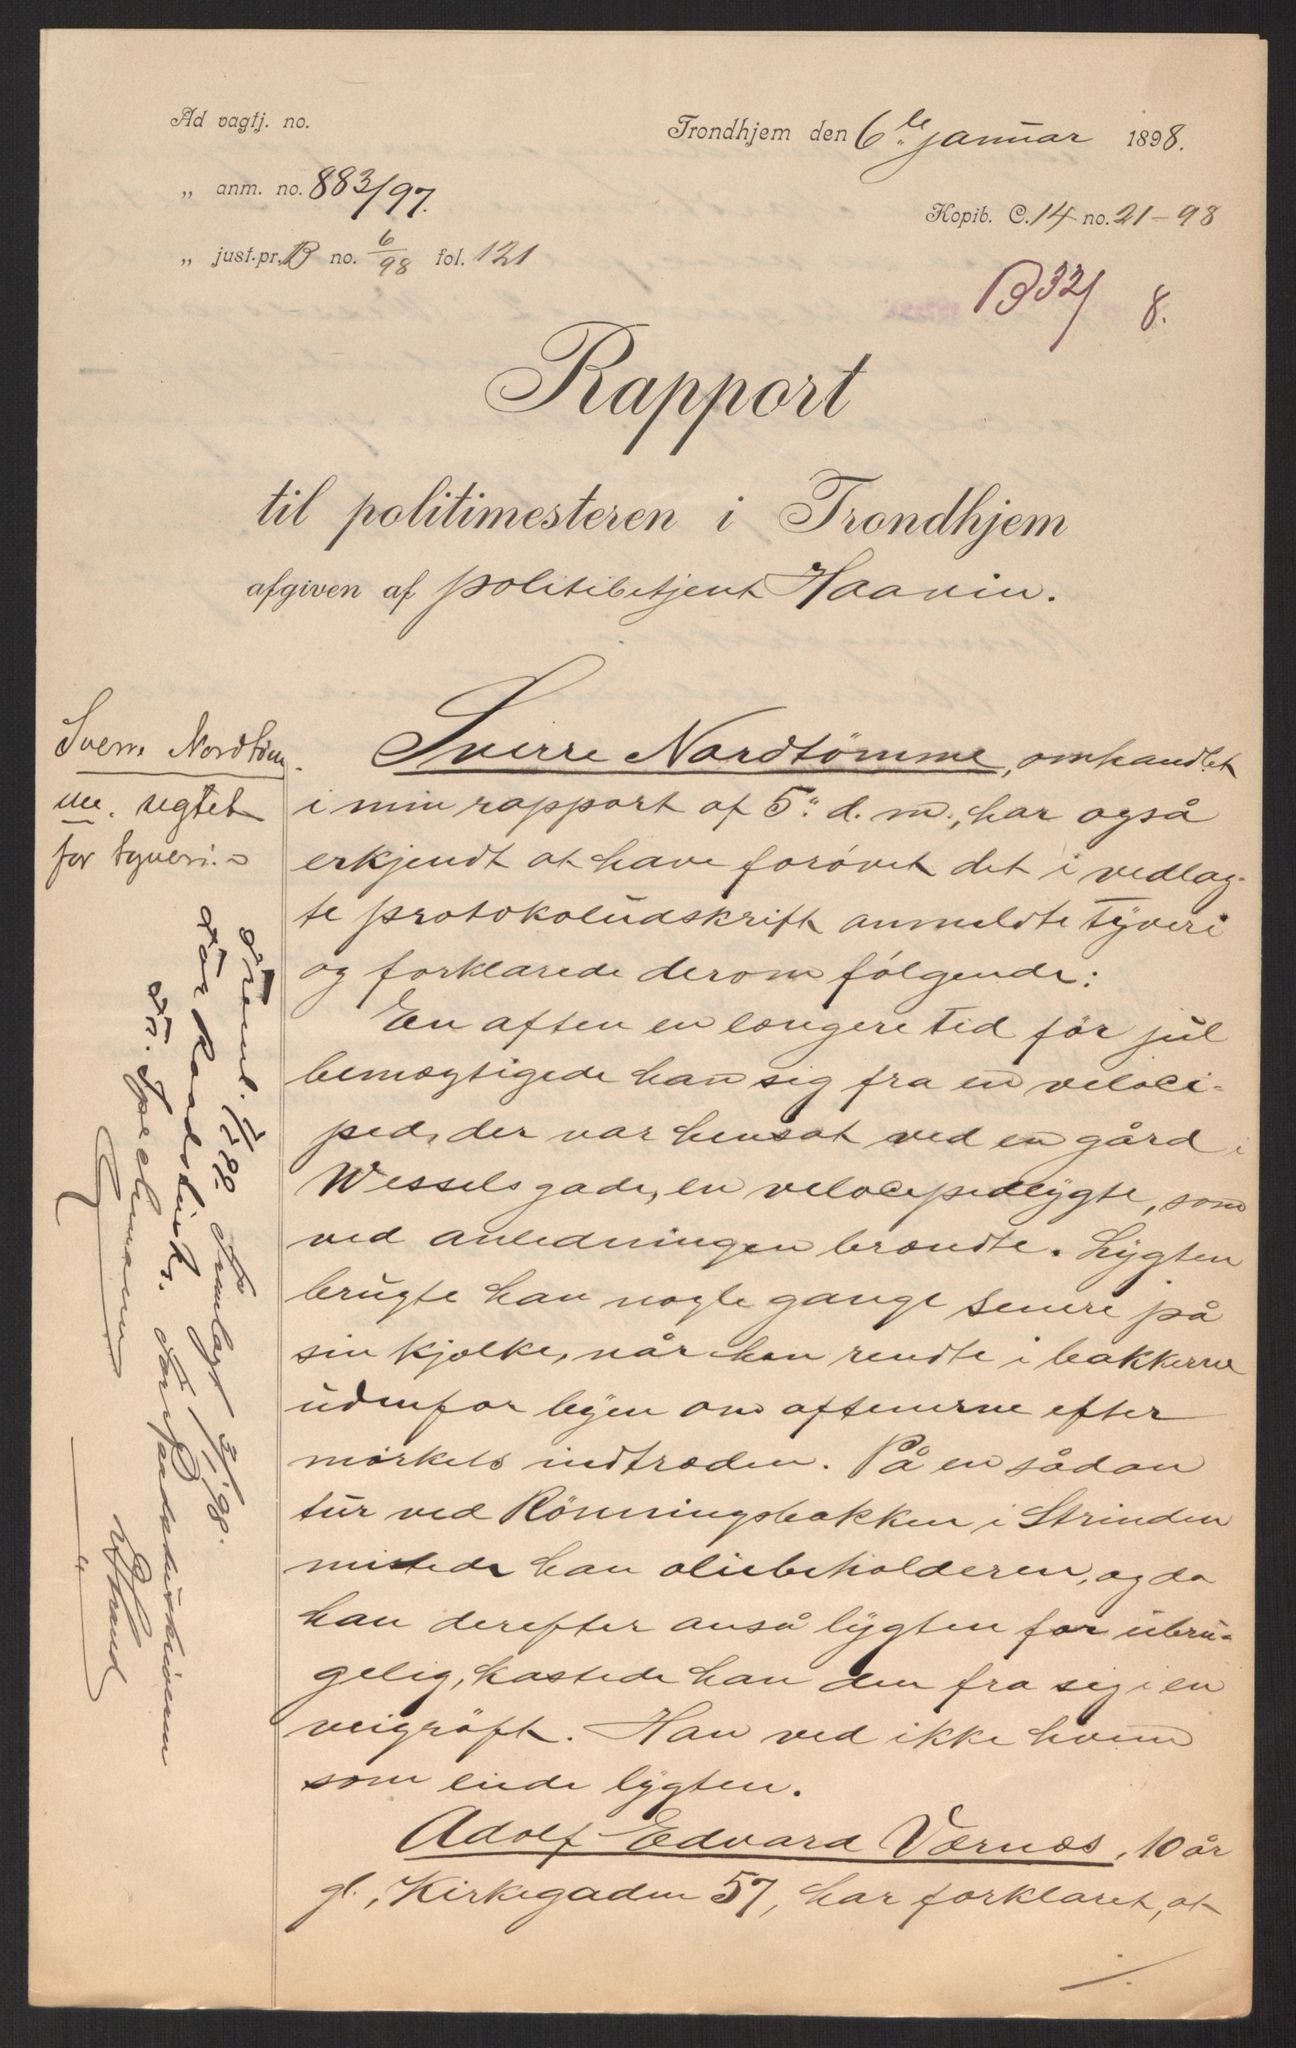 Ad vagtj. no.
Trondhjem den 6te januar 1898.
„ anm. no. 883/97.
Kopib. C. 14 no. 21-98
„ just.pr. B no. 6/98 fol. 121
B 32/8.
Rapport
til politimesteren i Trondhjem
afgiven af politibetjent Haavin.
Sverre Nordtöm-
me. sigtet
for tyveri.-
Sverre Nordtömme, omhandlet
i min rapport af 5" d. m., har også
erkjendt at have forøvet det i vedlag-
te protokoludskrift anmeldte tyveri
og forklarede derom følgende:
En aften en længere tid før jul
bemægtigede han sig fra en veloci-
ped, der var hensat ved en gård i
Wesselsgade, en velocipedlygte, som
ved anledningen brændte. Lygten
brugte han nogle gange senere på
sin kjælke, når han rendte i bakkerne
udenfor byen om aftenerne efter
mørkets indtræden. På en sådan
tur ved Rönningsbakken i Strinden
mistede han oliebeholderen, og da
han derefter anså lygten for ubru-
gelig, kastede han den fra sig i en
veigröft. Han ved ikke hvem
som eiede lygten.
Adolf Edvard Værnæs, 10 år
gl., Kirkegaden 57, har forklaret, at
Fremlagt 3/1 98.